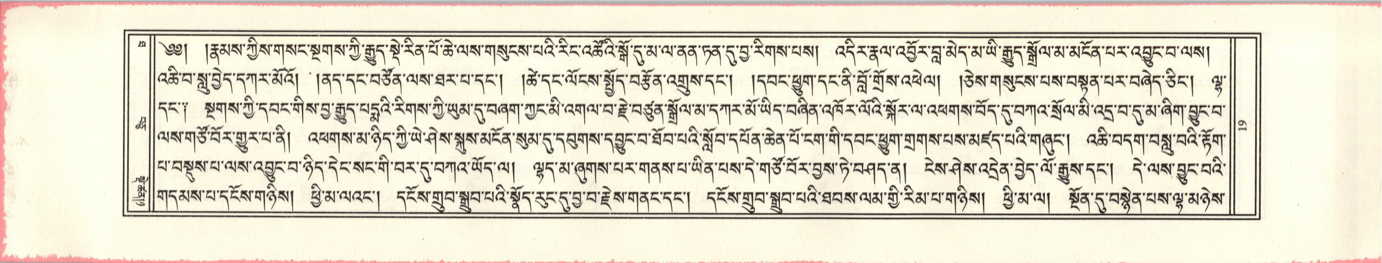 ༄༅། །རྣམས་ཀྱིས་གསང་སྔགས་ཀྱི་རྒྱུད་སྡེ་རིན་པོ་ཆེ་ལས་གསུངས་པའི་རིང་འཚོའི་སྒོ་དུ་མ་ལ་ནན་ཏན་དུ་བྱ་རིགས་པས། འདིར་རྣལ་འབྱོར་བླ་མེད་མ་ཡི་རྒྱུད་སྒྲོལ་མ་མངོན་པར་འབྱུང་བ་ལས།
འཆི་བ་སླུ་བྱེད་དཀར་མོའོ། །ནད་དང་བཙོན་ལས་ཐར་པ་དང་། །ཚེ་དང་ལོངས་སྤྱོད་བརྩོན་འགྲུས་དང་། །དབང་ཕྱུག་དང་ནི་བློ་གྲོས་འཕེལ། །ཅེས་གསུངས་པས་བསྟན་པར་བཞེད་ཅིང་། ལྷ་
དང་། སྔགས་ཀྱི་དབང་གིས་བྱ་རྒྱུད་པདྨའི་རིགས་ཀྱི་ཡུམ་དུ་བཞག་ཀྱང་མི་འགལ་བ་རྗེ་བཙུན་སྒྲོལ་མ་དཀར་མོ་ཡིད་བཞིན་འཁོར་ལོའི་སྐོར་ལ་འཕགས་བོད་དུ་བཀའ་སྲོལ་མི་འདྲ་བ་དུ་མ་ཞིག་བྱུང་བ་
ལས་གཙོ་བོར་གྱུར་པ་ནི། འཕགས་མ་ཉིད་ཀྱི་ཡེ་ཤེས་སྐུས་མངོན་སུམ་དུ་དབུགས་དབྱུང་བ་ཐོབ་པའི་སློབ་དཔོན་ཆེན་པོ་ངག་གི་དབང་ཕྱུག་གྲགས་པས་མཛད་པའི་གཞུང་། འཆི་བདག་བསླུ་བའི་རྟོག་
པ་བསྡུས་པ་ལས་འབྱུང་བ་ཉིད་དེང་སང་གི་བར་དུ་བཀའ་ཡོད་ལ། ལྷད་མ་ཞུགས་པར་གནས་པ་ཡིན་པས་དེ་གཙོ་བོར་བྱས་ཏེ་བཤད་ན། ངེས་ཤེས་འདྲེན་བྱེད་ལོ་རྒྱུས་དང་། དེ་ལས་བྱུང་བའི་
གདམས་པ་དངོས་གཉིས། ཕྱི་མ་ལའང་། དངོས་གྲུབ་སྒྲུབ་པའི་སྣོད་རུང་དུ་བྱ་བ་རྗེས་གནང་དང་། དངོས་གྲུབ་སྒྲུབ་པའི་ཐབས་ལམ་གྱི་རིམ་པ་གཉིས། ཕྱི་མ་ལ། སྔོན་དུ་བསྙེན་པས་ལྷ་མཉེས་
19